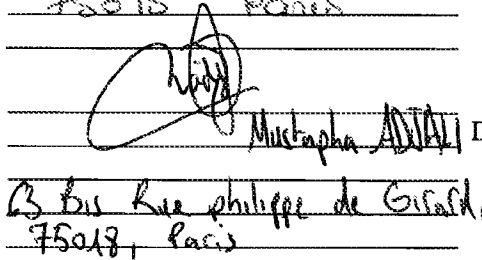 75018 Paris
Mustapha ADJALI
Bis Rue philippe de Girard,
75018, Paris